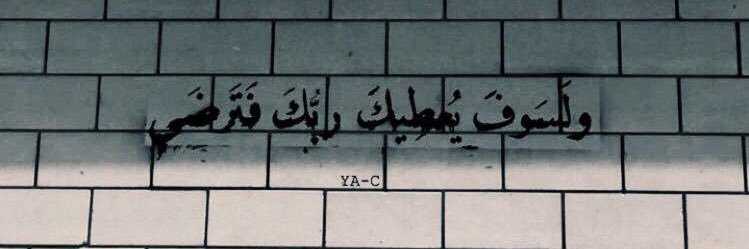 ولَسَوفَ يُعطيكَ ربُّكَ فَتَرضَى
YA-C